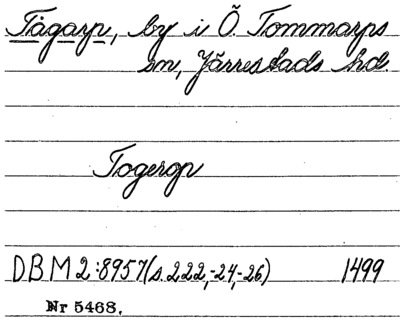 Tågarp, by i Ö. Tommarps
sn, Järrestads hd.
Togerop
DBM 2:8957 (s. 222,-24,-26) 1499
Nr 5468.